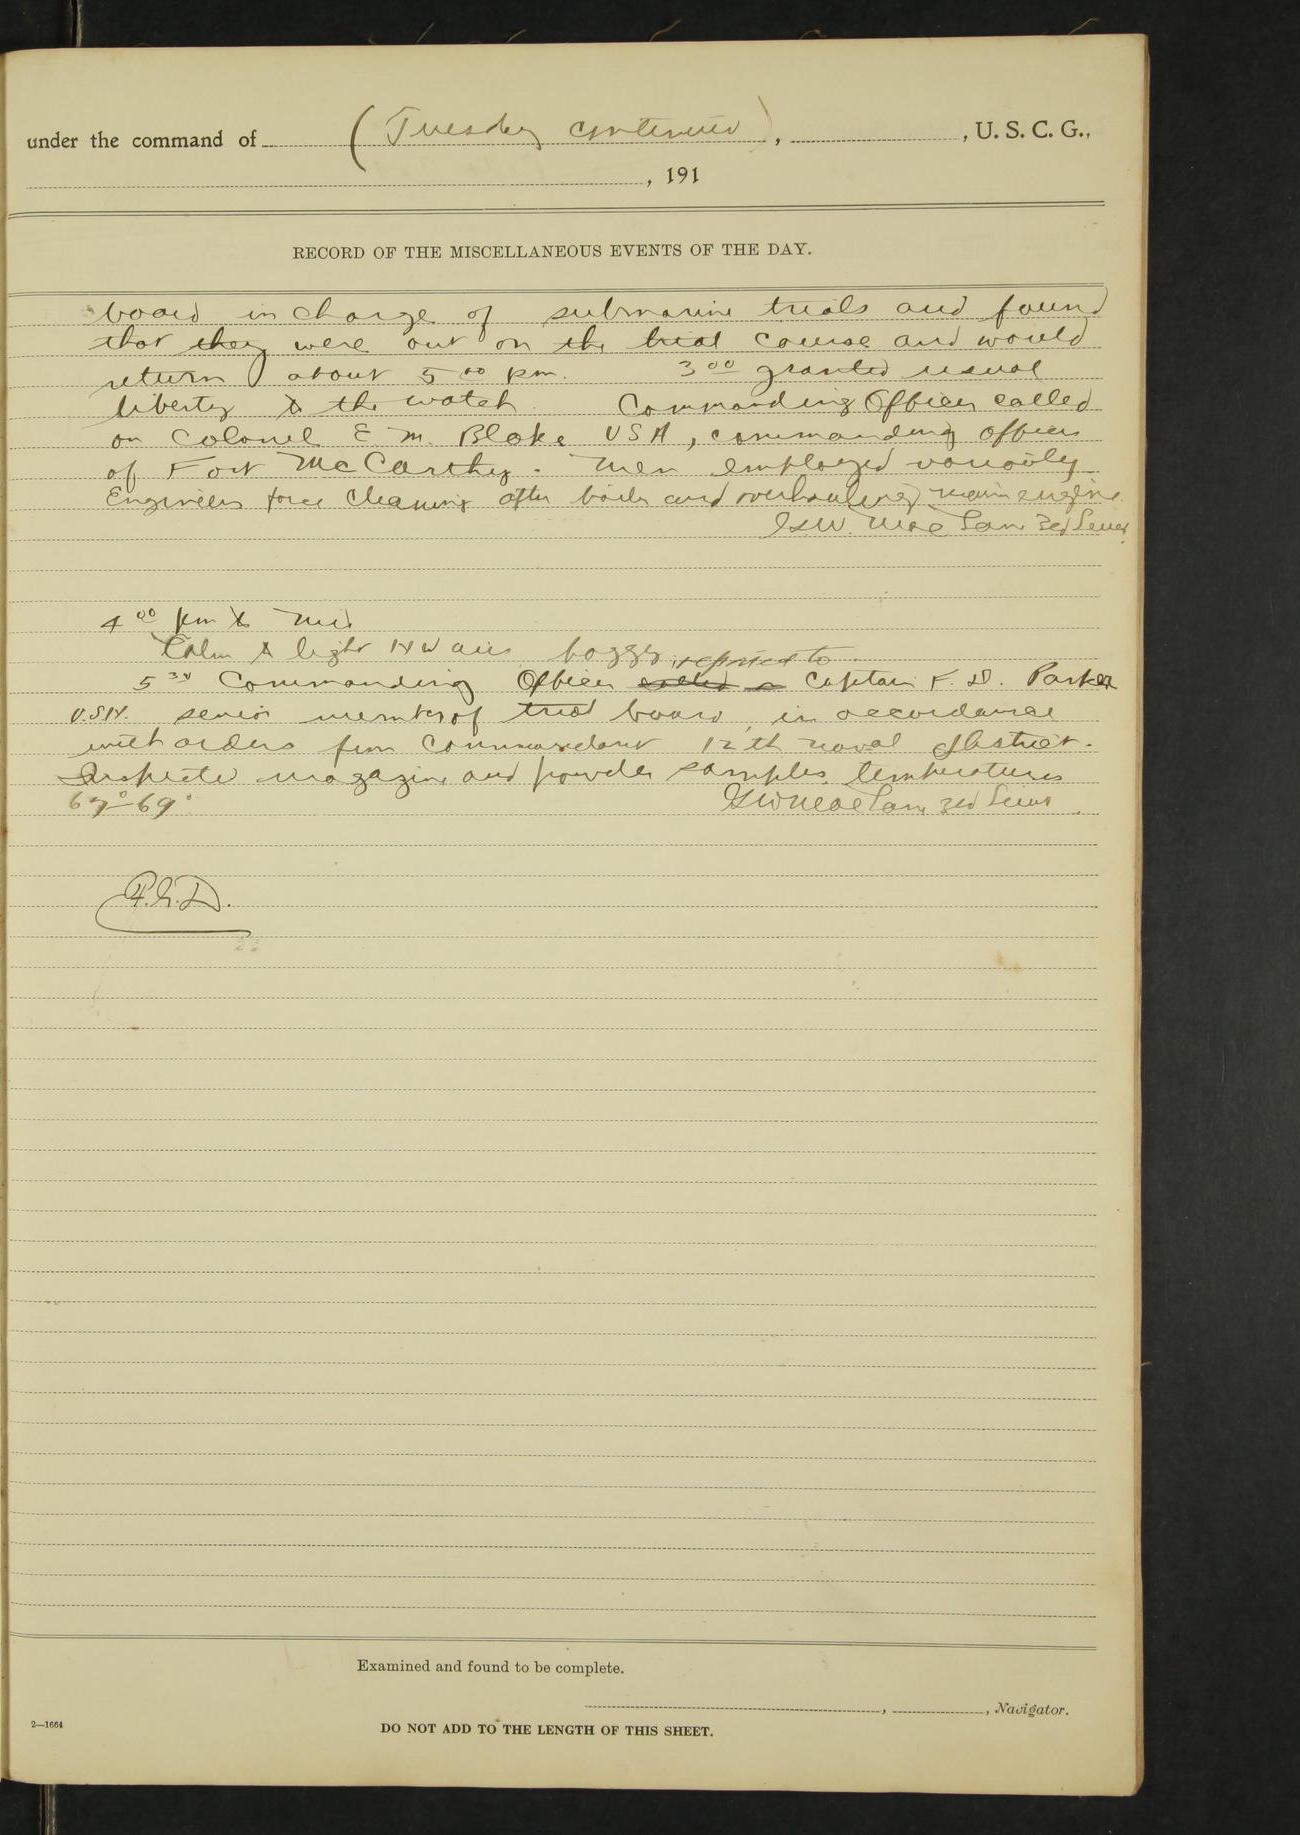 under the command of (Tuesday continued), , U. S. C. G.,
, 191
RECORD OF THE MISCELLANEOUS EVENTS OF THE DAY.
board in charge of submarine trials and found
that they were out on the trial course and would
return about 5 00 pm. 3 00 granted usual
liberty to the watch. Commanding Officer called
on Colonel E. M. Blake USA, commanding officer
of Fort McCarthy. Men employed variously
Engineers force cleaning after boiler and overhauling main engine.
3rd Lieut
4 00 pm to Mid
Calm to light NW airs foggy. reported to
5 30 Commanding Officer called on Captain F. D. Parker
U.S.N. senior member of trial board, in accordance
with orders from Commandant 12th naval district.
Inspected magazine and powder samples, temperatures
67°-69° 3rd Lieut
Examined and found to be complete.
, , Navigator.
2—1664
DO NOT ADD TO THE LENGTH OF THIS SHEET.